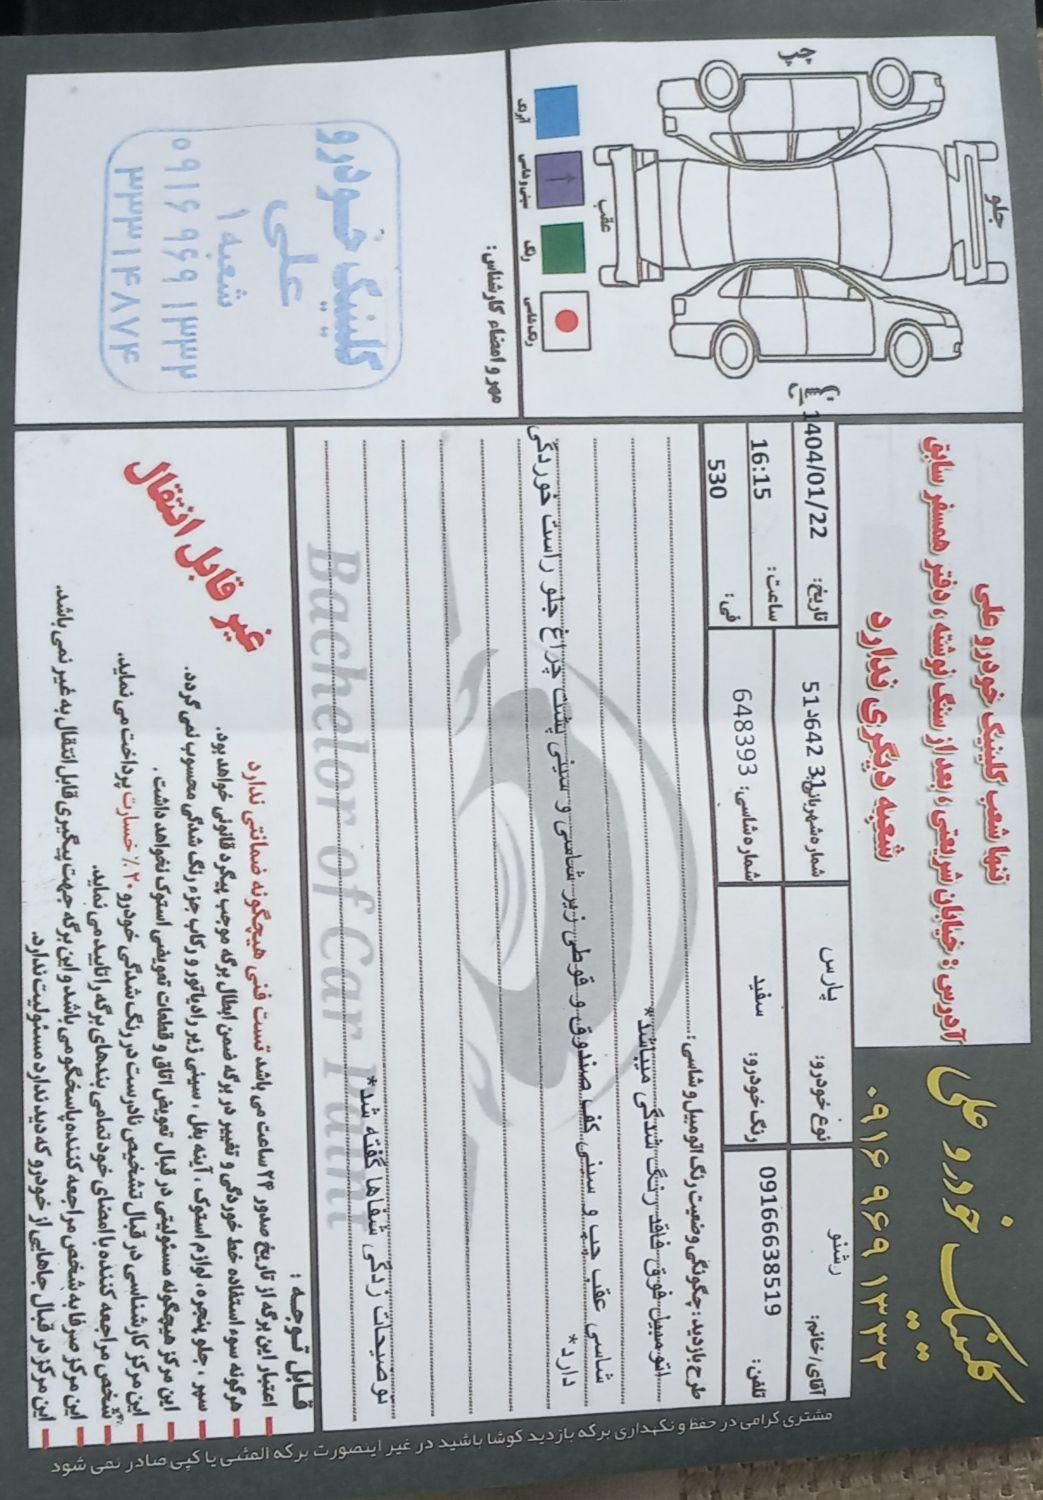 کلینیک خودرو علی
۰۹۱۶ ۹۶۹ ۱۳۳۲
تنها شعب کلینیک خودرو علی
آدرس : خیابان شریعتی ، بعد از سنگ نوشته ، دفتر همسفر سابق
شعبه دیگری ندارد
چپ
جلو
عقب
آبرنگ
سینی و شاسی
رنگ
رنگ شاسی
آقای/خانم: رشنو
نوع خودرو: پارس
شماره شهربانی: 51د642 31
تاریخ: 1404/01/22
تلفن: 09166638519
رنگ خودرو: سفید
شماره شاسی: 648393
ساعت: 16:15
فی: 530
طرح بازدید : چگونگی وضعیت رنگ اتومبیل و شاسی :
اتومبیل فوق فاقد رنگ شدگی میباشد*
شاسی عقب چپ و سینی کف صندوق و قوطی زیر شاسی و سینی پشت چراغ جلو راست خوردگی
دارد*
توضیحات رنگی شفاها گفته شد*
Bachelor of Car Paint
مهر و امضاء کارشناس :
کلینیک خودرو
علی
شعبه ۱
۰۹۱۶ ۹۶۹ ۱۳۳۲
۳۳۳۱۴۸۷۴
قابل توجه :
اعتبار این برگه از تاریخ صدور ۲۴ ساعت می باشد تست فنی هیچگونه ضمانتی ندارد
هرگونه سوء استفاده خط خوردگی و تغییر در برگه ضمن ابطال برگه موجب پیگرد قانونی خواهد بود.
سپر ، جلو پنجره، لوازم استوک ، آینه بغل ، سینی زیر رادیاتور و رکاب جزء رنگ شدگی محسوب نمی گردد.
این مرکز هیچگونه مسئولیتی در قبال تعویض اتاق و قطعات تعویضی استوک نخواهد داشت .
این مرکز کارشناسی در قبال تشخیص نادرست در رنگ شدگی خودرو ۲۰٪ خسارت پرداخت می نماید.
شخص مراجعه کننده با امضای خود تمامی بندهای برگه را تایید می نماید.
این مرکز صرفا به شخص مراجعه کننده پاسخگو می باشد و این برگه جهت پیگیری قابل انتقال به غیر نمی باشد.
این مرکز در قبال جاهایی از خودرو که دید ندارد مسئولیت ندارد.
غیر قابل انتقال
مشتری گرامی در حفظ و نگهداری برگه بازدید کوشا باشید در غیر اینصورت برگه المثنی یا کپی صادر نمی شود